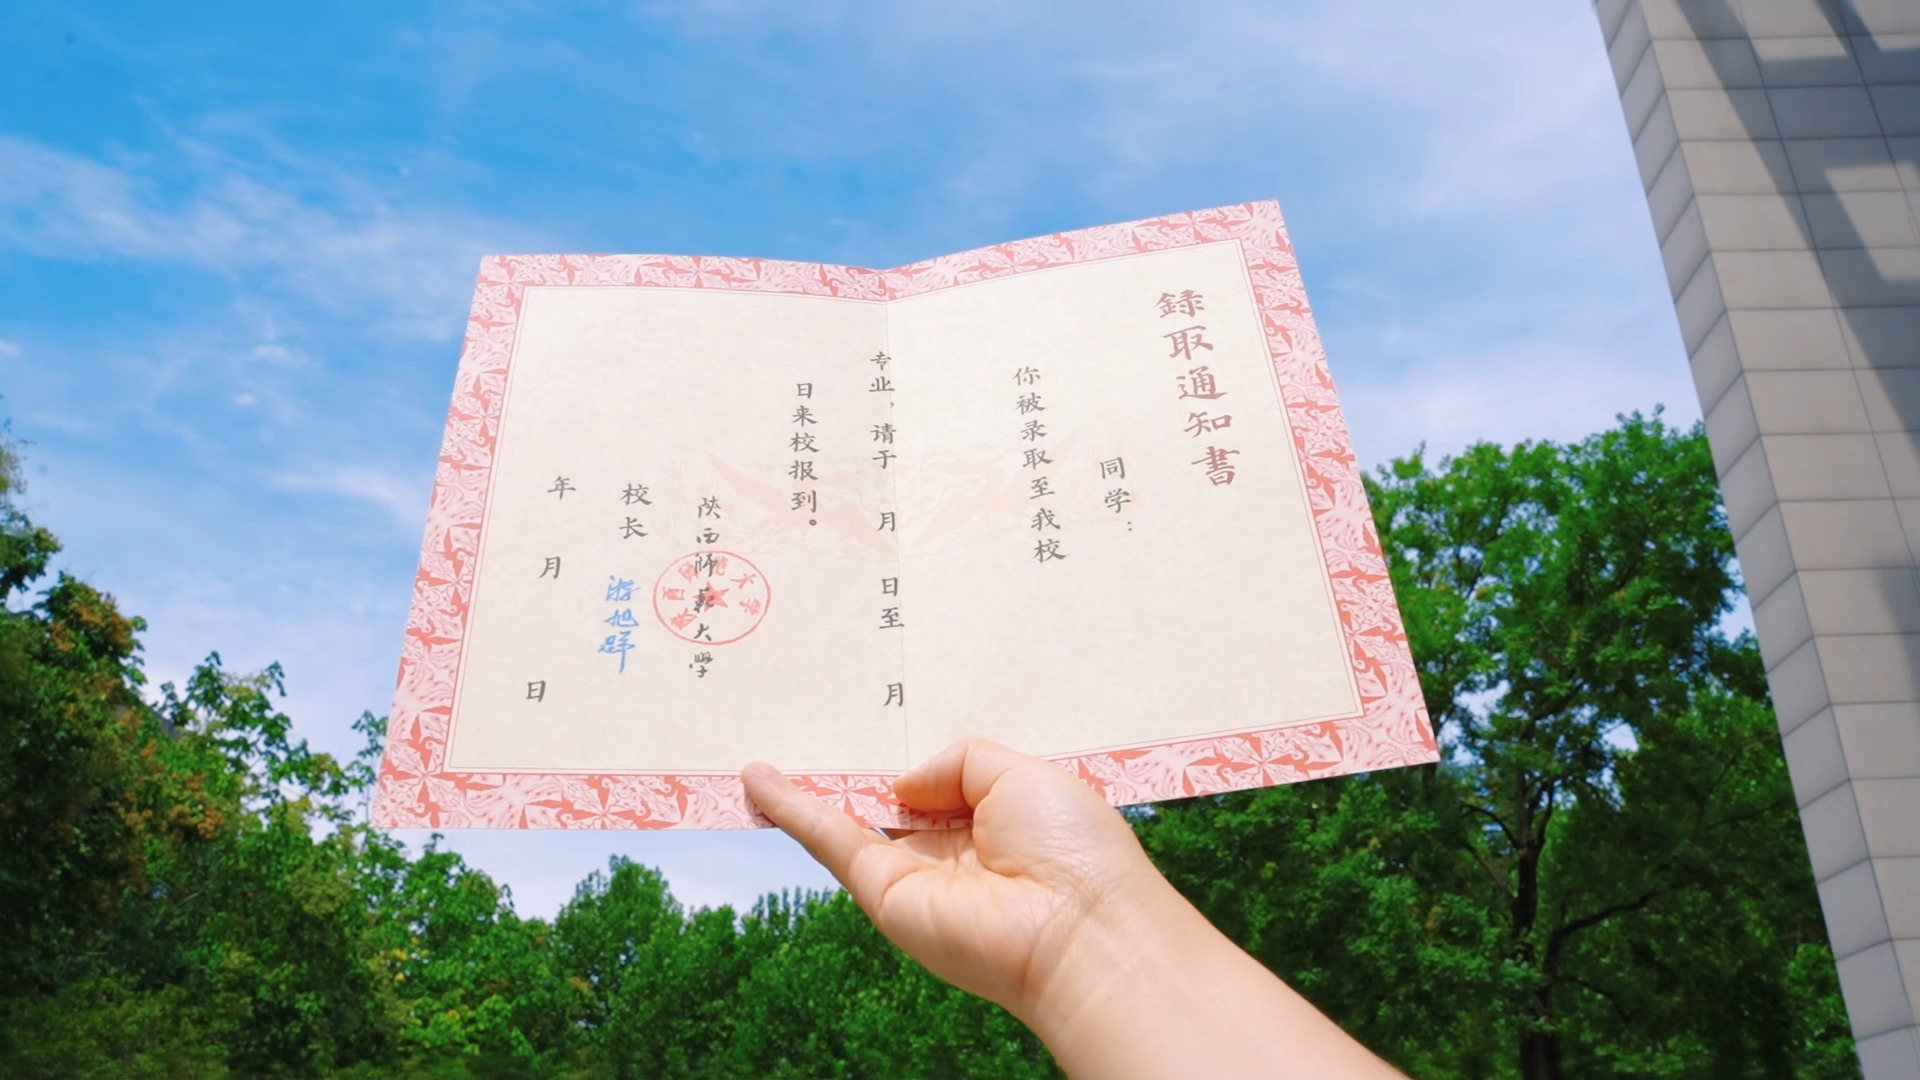 錄取通知書
同学：
你被录取至我校
专业，请于 月 日至 月
日来校报到。
陕西师范大學
校长 游旭群
年 月 日